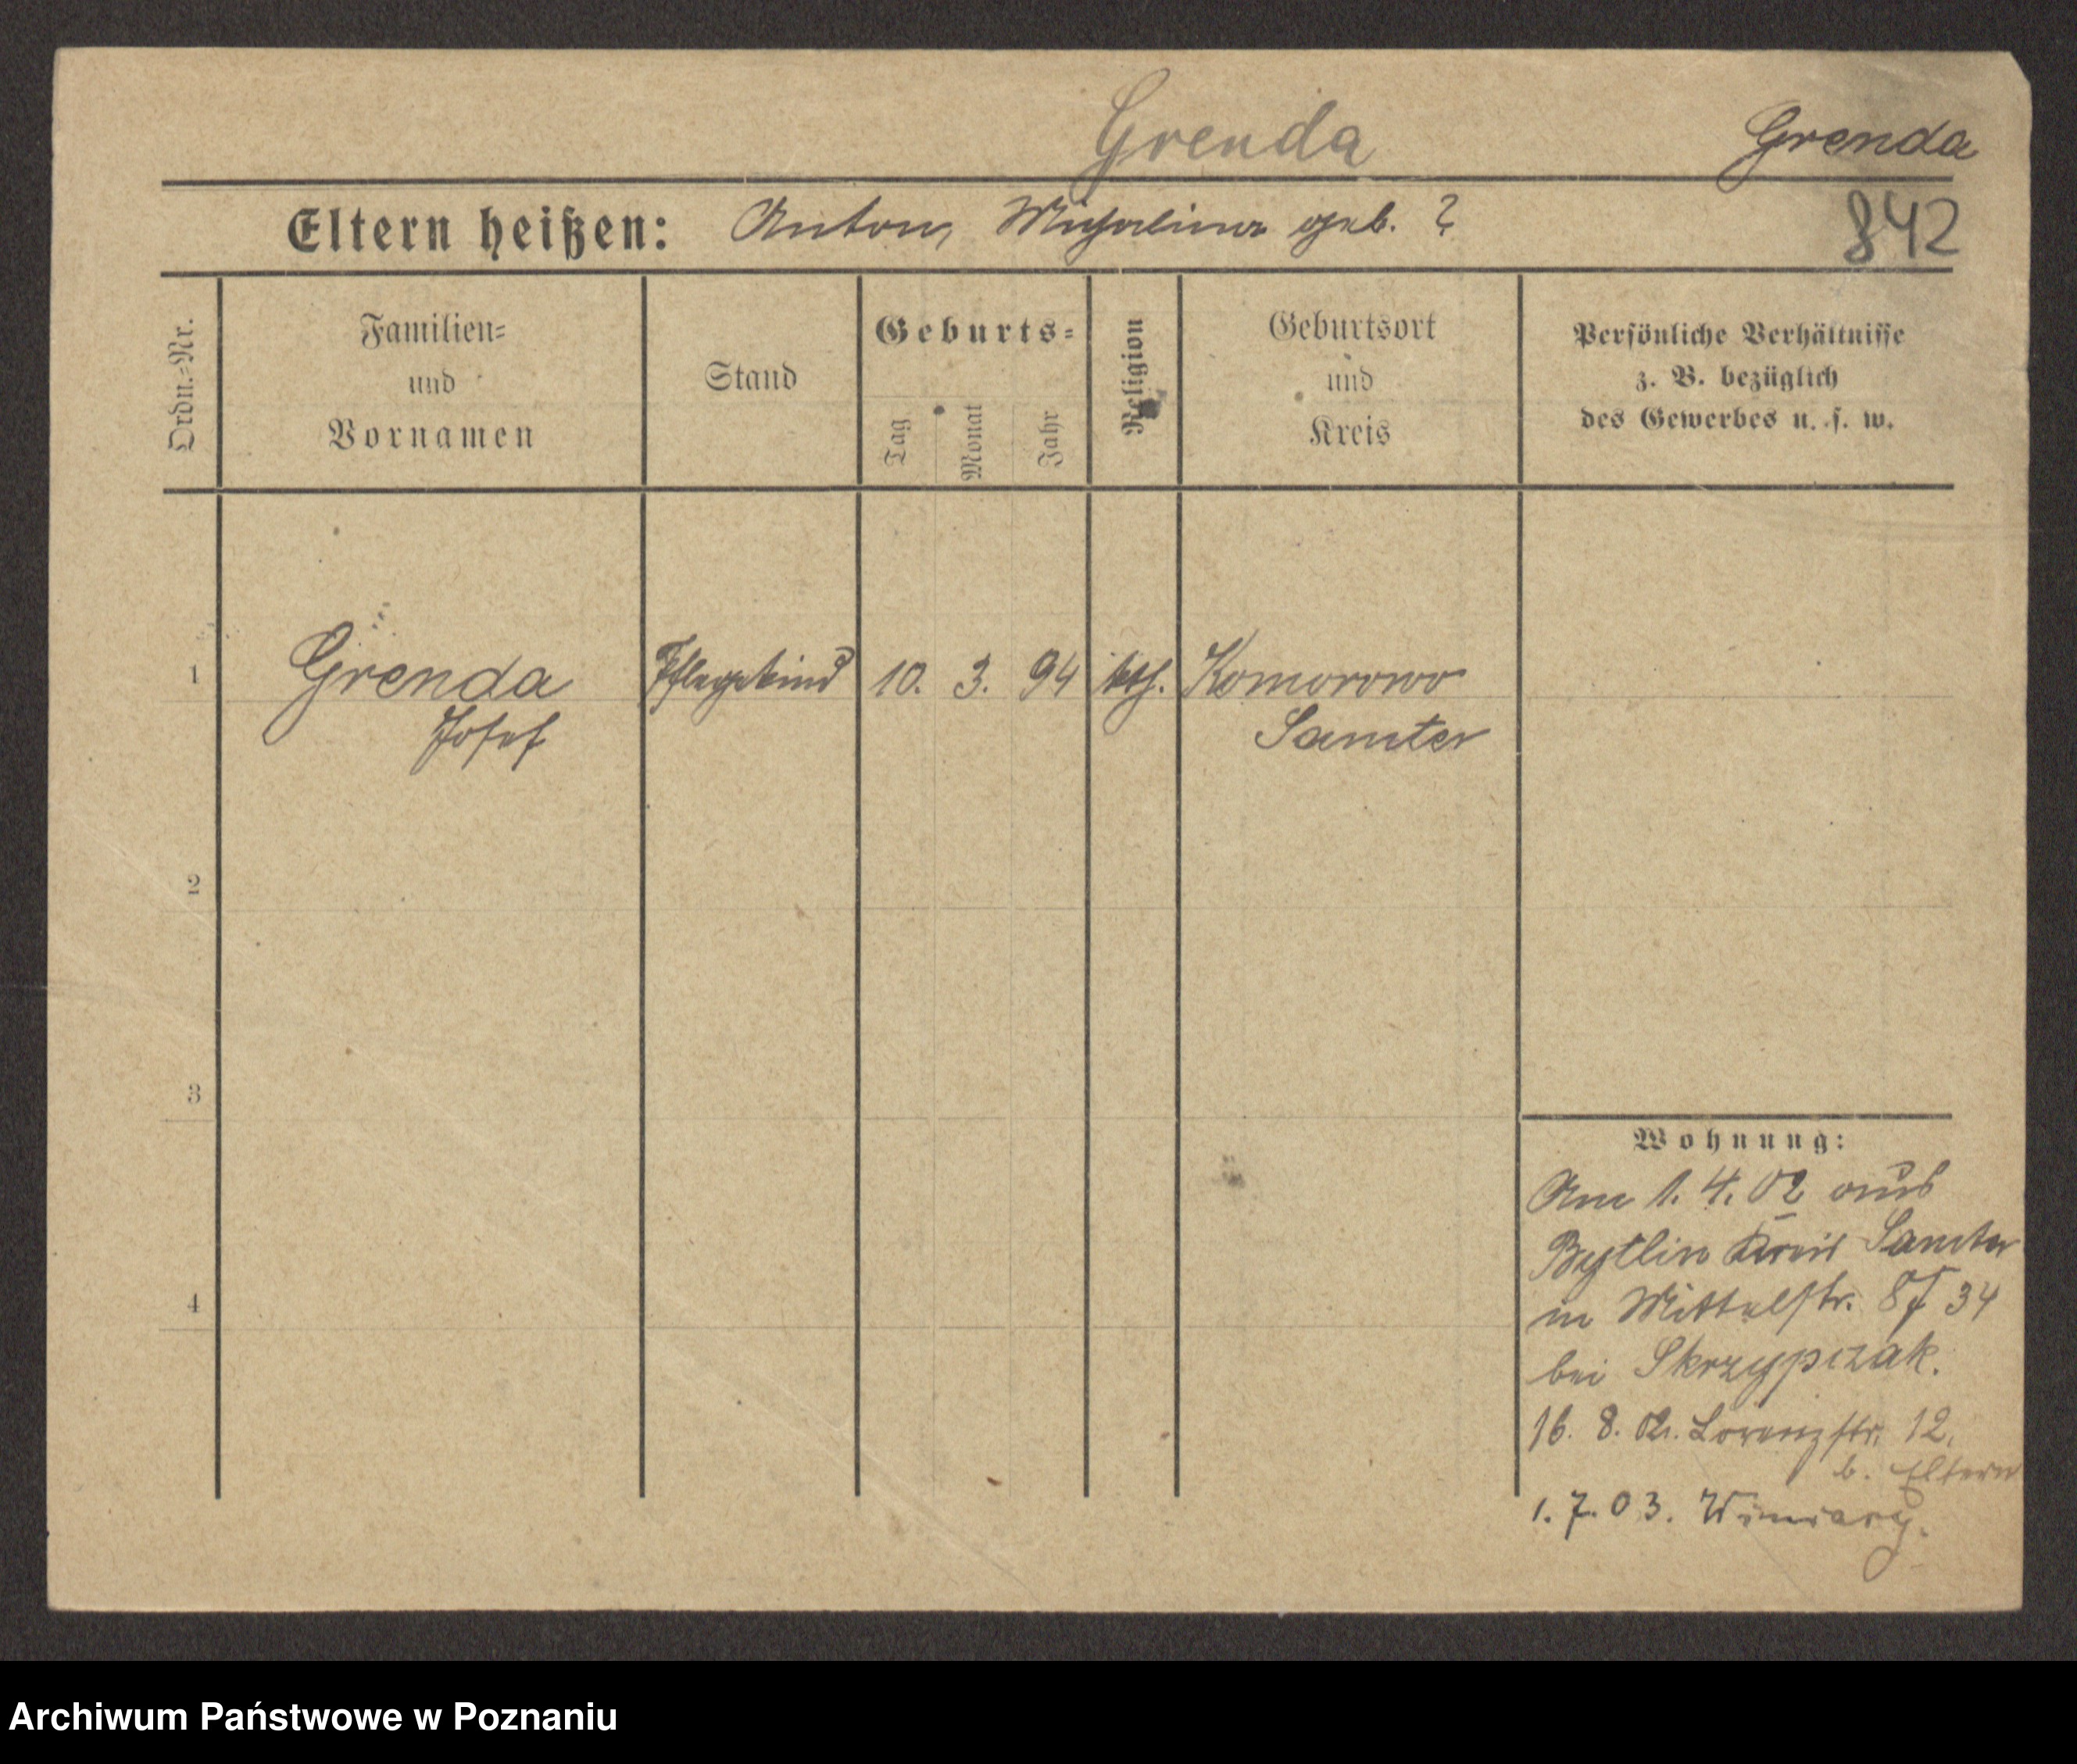 Grenda
Grenda
Eltern heißen: Anton, Michalina geb. ?
842
Ordn.=Nr.
Familien=
und
Vornamen
Stand
Geburts=
Tag
Monat
Jahr
Religion
Geburtsort
und
Kreis
Persönliche Verhältnisse
z. B. bezüglich
des Gewerbes u. s. w.
1
Grenda
Josef
Pflegekind
10. 3. 94
kth.
Komorowo
Samter
2
3
4
Wohnung:
Am 1. 4. 02 aus
Bytlin Kreis Samter
in Mittelstr. 34
bei Skrzypczak.
16. 8. 02. Lorenzstr. 12.
b. Eltern
1. 7. 03. Winiary.
Archiwum Państwowe w Poznaniu